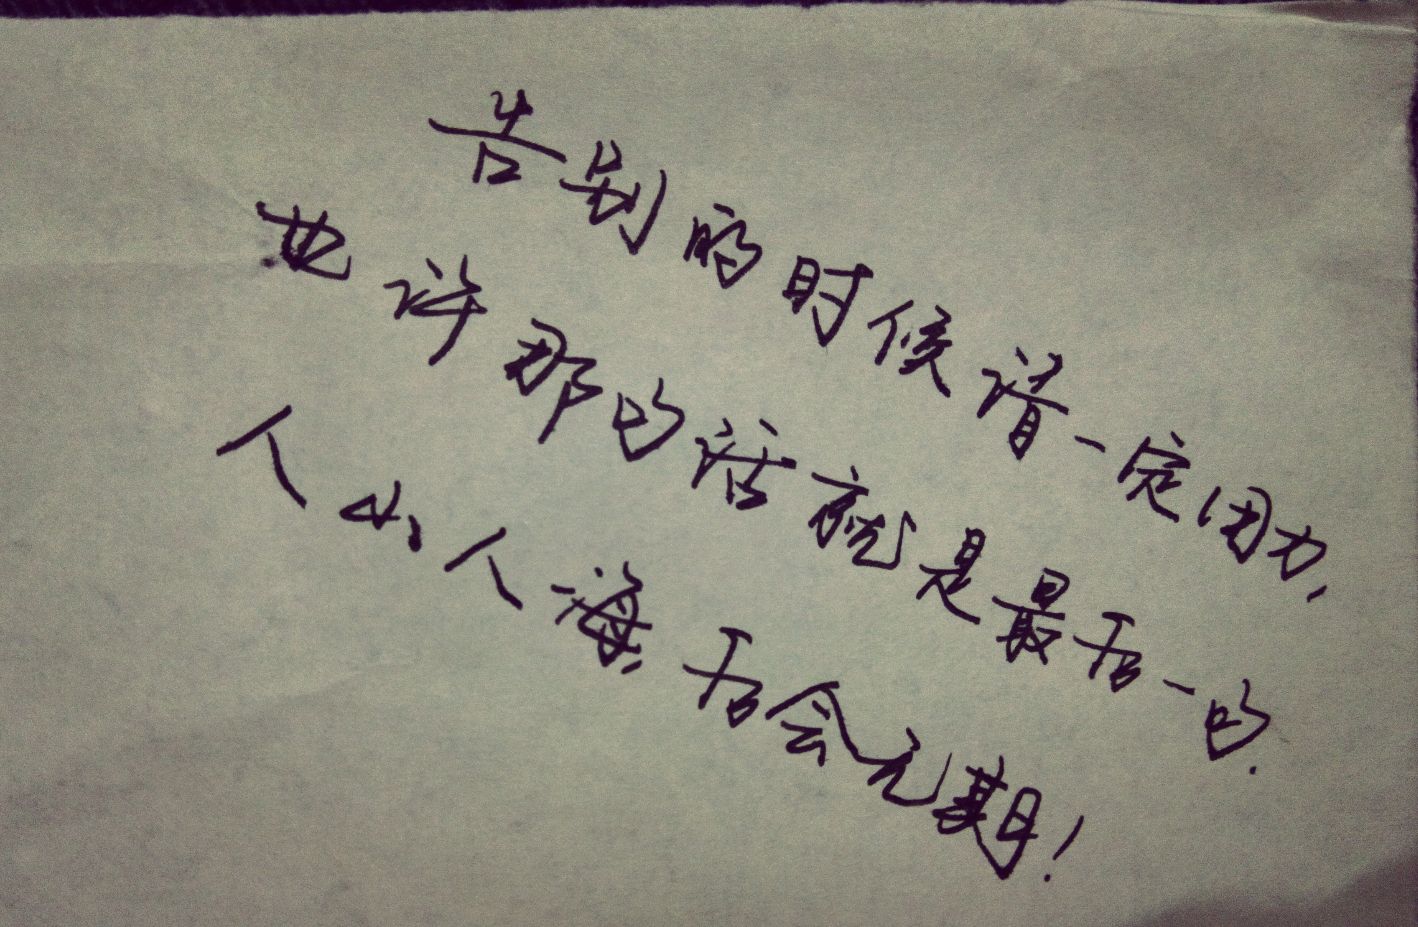 告别的时候请一定用力,
也许那句话就是最后一句.
人山人海,后会无期!